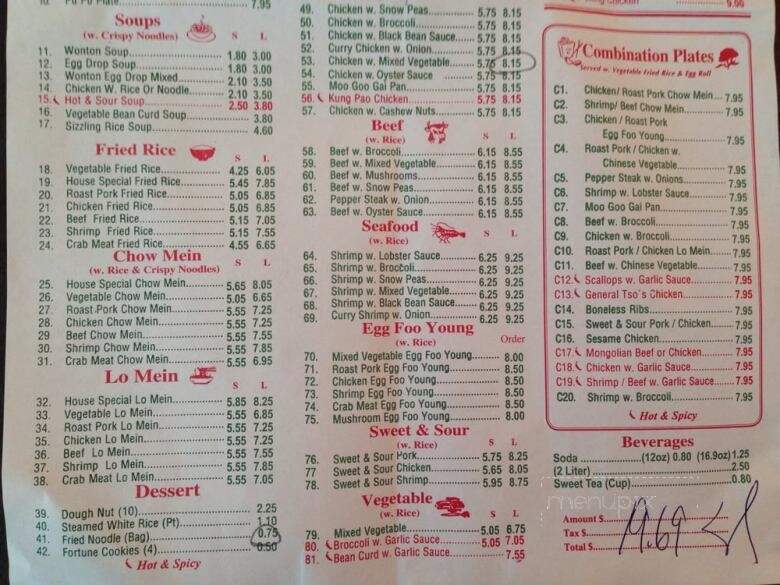 10. Pu Pu Plate 7.95
Soups
(w. Crispy Noodles)
11. Wonton Soup 1.80 3.00
12. Egg Drop Soup 1.80 3.00
13. Wonton Egg Drop Mixed 2.10 3.50
14. Chicken W. Rice Or Noodle 2.10 3.50
15. Hot & Sour Soup 2.50 3.80
16. Vegetable Bean Curd Soup 3.80
17. Sizzling Rice Soup 4.60
Fried Rice S L
18. Vegetable Fried Rice 4.25 6.05
19. House Special Fried Rice 5.45 7.85
20. Roast Pork Fried Rice 5.05 6.85
21. Chicken Fried Rice 5.05 6.85
22. Beef Fried Rice 5.15 7.05
23. Shrimp Fried Rice 5.15 7.55
24. Crab Meat Fried Rice 4.55 6.65
Chow Mein
(w. Rice & Crispy Noodles) S L
25. House Special Chow Mein 5.65 8.05
26. Vegetable Chow Mein 5.05 6.65
27. Roast Pork Chow Mein 5.55 7.25
28. Chicken Chow Mein 5.55 7.25
29. Beef Chow Mein 5.55 7.55
30. Shrimp Chow Mein 5.55 7.55
31. Crab Meat Chow Mein 5.55 6.95
Lo Mein S L
32. House Special Lo Mein 5.85 8.25
33. Vegetable Lo Mein 5.55 6.85
34. Roast Pork Lo Mein 5.55 7.25
35. Chicken Lo Mein 5.55 7.25
36. Beef Lo Mein 5.55 7.55
37. Shrimp Lo Mein 5.55 7.85
38. Crab Meat Lo Mein 5.55 7.05
Dessert
39. Dough Nut (10) 2.25
40. Steamed White Rice (Pt) 1.10
41. Fried Noodle (Bag) 0.75
42. Fortune Cookies (4) 0.50
Hot & Spicy
49. Chicken w. Snow Peas 5.75 8.15
50. Chicken w. Broccoli 5.75 8.15
51. Chicken w. Black Bean Sauce 5.75 8.15
52. Curry Chicken w. Onion 5.75 8.15
53. Chicken w. Mixed Vegetable 5.75 8.15
54. Chicken w. Oyster Sauce 5.75 8.15
55. Moo Goo Gai Pan 5.75 8.15
56. Kung Pao Chicken 5.75 8.15
57. Chicken w. Cashew Nuts 5.75 8.15
Beef
(w. Rice) S L
58. Beef w. Broccoli 6.15 8.55
59. Beef w. Mixed Vegetable 6.15 8.55
60. Beef w. Mushrooms 6.15 8.55
61. Beef w. Snow Peas 6.15 8.55
62. Pepper Steak w. Onion 6.15 8.55
63. Beef w. Oyster Sauce 6.15 8.55
Seafood
(w. Rice) S L
64. Shrimp w. Lobster Sauce 6.25 9.25
65. Shrimp w. Broccoli 6.25 9.25
66. Shrimp w. Snow Peas 6.25 9.25
67. Shrimp w. Mixed Vegetable 6.25 9.25
68. Shrimp w. Black Bean Sauce 6.25 9.25
69. Curry Shrimp w. Onion 6.25 9.25
Egg Foo Young
(w. Rice) Order
70. Mixed Vegetable Egg Foo Young 8.00
71. Roast Pork Egg Foo Young 8.50
72. Chicken Egg Foo Young 8.50
73. Shrimp Egg Foo Young 8.50
74. Crab Meat Egg Foo Young 8.50
75. Mushroom Egg Foo Young 8.00
Sweet & Sour
(w. Rice) S L
76. Sweet & Sour Pork 5.75 8.25
77 Sweet & Sour Chicken 5.65 8.05
78. Sweet & Sour Shrimp 5.95 8.75
Vegetable
(w. Rice) S L
79. Mixed Vegetable 5.05 6.75
80. Broccoli w. Garlic Sauce 5.05 7.05
81. Bean Curd w. Garlic Sauce 7.55
Chicken 9.00
Combination Plates
Served w. Vegetable Fried Rice & Egg Roll
C1. Chicken/ Roast Pork Chow Mein 7.95
C2. Shrimp/ Beef Chow Mein 7.95
C3. Chicken / Roast Pork
Egg Foo Young 7.95
C4. Roast Pork / Chicken w.
Chinese Vegetable 7.95
C5. Pepper Steak w. Onions 7.95
C6. Shrimp w. Lobster Sauce 7.95
C7. Moo Goo Gai Pan 7.95
C8. Beef w. Broccoli 7.95
C9. Chicken w. Broccoli 7.95
C10. Roast Pork / Chicken Lo Mein 7.95
C11. Beef w. Chinese Vegetable 7.95
C12. Scallops w. Garlic Sauce 7.95
C13. General Tso's Chicken 7.95
C14. Boneless Ribs 7.95
C15. Sweet & Sour Pork / Chicken 7.95
C16. Sesame Chicken 7.95
C17 Mongolian Beef or Chicken 7.95
C18. Chicken w. Garlic Sauce 7.95
C19. Shrimp / Beef w. Garlic Sauce 7.95
C20. Shrimp w. Broccoli 7.95
Hot & Spicy
Beverages
Soda (12oz) 0.80 (16.9oz) 1.25
(2 Liter) 2.50
Sweet Tea (Cup) 0.80
menupix
Amount $
Tax $
Total $ 14.69